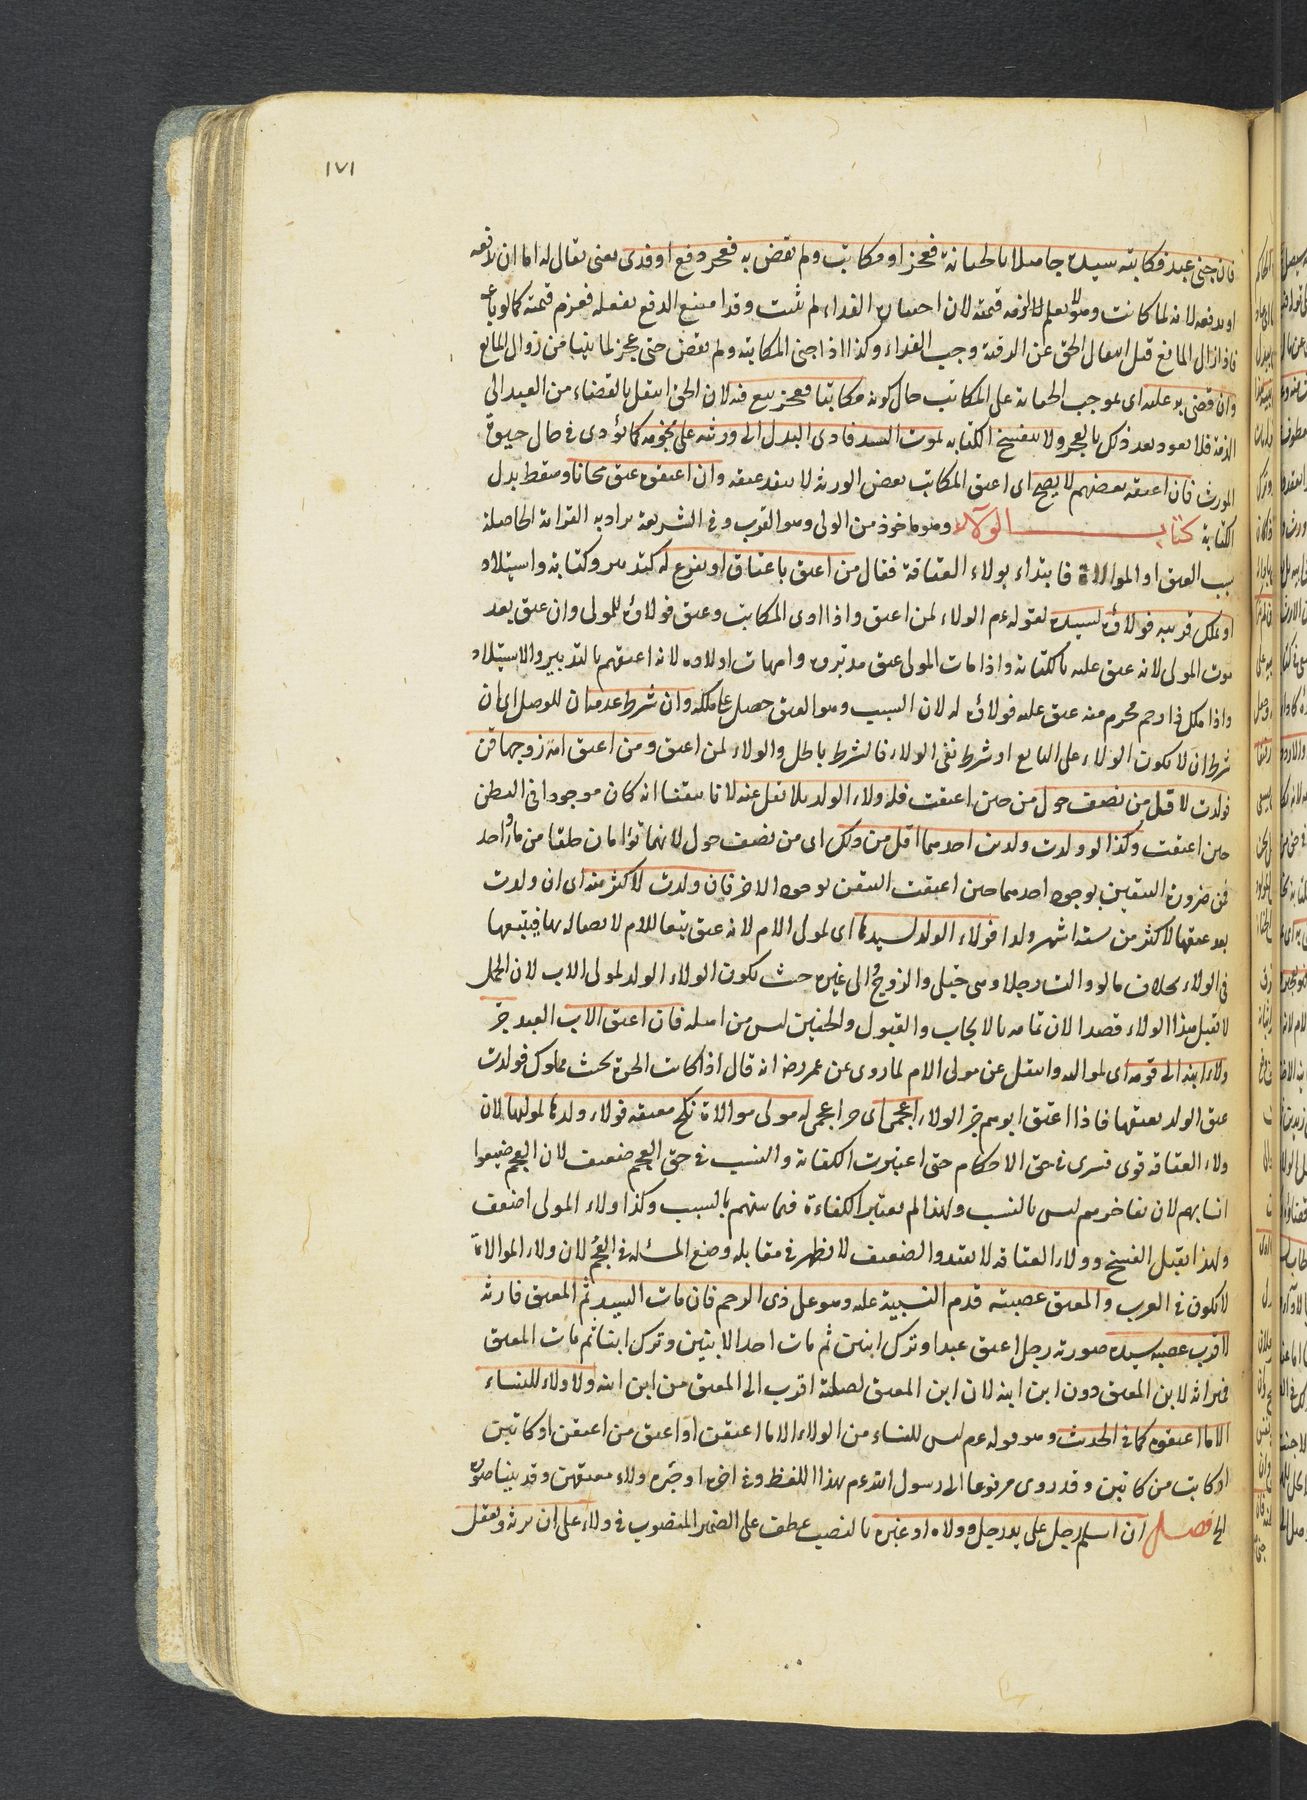 ١٧١
فان جنى عبد فكاتبه سيده جاهلا بالجناية فعجز او مكاتب ولم يقض به فعجز دفع او فدى يعنى يقال له اما ان تدفعه
او تدفعه لانه لما كاتب وهو لا يعلم لا لزمه قيمته لان اختيار الفداء لم يثبت وقد امتنع الدفع بفعله فغرم قيمته كما لو باعه
فاذا زال المانع قبل انتقال الحق عن الرقبة وجب الفداء وكذا اذا جنى المكاتب ولم يقض حتى عجز لما بينا من زوال المانع
وان قضى به عليه اى بموجب الجناية على المكاتب حال كونه مكاتبا فعجز بيع فيه لان الحق انتقل بالقضاء من العبد الى
الذمة فلا يعود بعد ذلك بالعجز ولا تنفسخ الكتابة بموت السيد فادى البدل الى ورثته على نجومه كما يؤدى فى حال حيوة
المورث فان اعتقه بعضهم لا يصح اى اعتق المكاتب بعض الورثة لا ينفد عتقه وان اعتقوه عتق مجانا وسقط بدل
الكتابة كتاب الولاء وهو ماخوذ من الولى وهو القرب وفى الشريعة يراد به القرابة الحاصلة
بسبب العتق او الموالاة فابتداء بولاء العتاقة فقال من اعتق باعتاق او بفرع له كتدبير وكتابة واستيلاد
او بملك قريبه فولاؤه لسيده لقوله عم الولاء لمن اعتق واذا ادى المكاتب وعتق فولاؤه للمولى وان عتق بعد
موت المولى لانه عتق عليه بالكتابة واذا مات المولى عتق مدبروه وامهات اولاده لانه اعتقهم بالتدبير والاستيلاد
واذا ملك ذا رحم محرم منه عتق عليه فولاؤه له لان السبب وهو العتق حصل على ملكه وان شرط عدمه ان للوصل اى ان
شرط ان لا يكون الولاء على البايع او شرط نفى الولاء فالشرط باطل والولاء لمن اعتق ومن اعتق امة زوجها قن
فولدت لاقل من نصف حول من حين اعتقت فله ولاء الولد بلا نقل عنه لانا تيقنا انه كان موجودا فى البطن
حين اعتقت وكذا لو ولدت ولدين احدهما اقل من ذلك اى من نصف حول لانهما توأمان خلقا من ماء واحد
فمن ضرورة التيقن بوجود احدهما حين اعتقت التيقن بوجود الاخر فان ولدت لاكثر منه اى ان ولدت
بعد عتقها لاكثر من ستة اشهر ولدا فولاء الولد لسيدها اى لمولى الام لانه عتق تبعا للام لاتصاله بها فيتبعها
فى الولاء بخلاف ما لو والت رجلا وهى حبلى والزوج الى غيره حيث يكون الولاء الولد لمولى الاب لان الحمل
لا يقبل هذا الولاء قصدا لان تمامه بالايجاب والقبول والجنين ليس من اهله فان اعتق الاب العبد جر
ولاء ابنه الى قومه اى لمواليه وانتقل عن مولى الام لما روى عن عمر رضه انه قال اذا كانت الحرة تحت مملوك فولدت
عتق الولد بعتقها فاذا اعتق ابوهم جر الولاء اعجمى اى حر اعجمى له مولى موالاة نكح معتقه فولاء ولدها لمولاها لان
ولاء العتاقة قوى فسرى فى حق الاحكام حتى اعتبرت الكفاءة والنسب فى حق العجم ضعيف لان العجم ضيعوا
انسابهم لان تفاخرهم ليس بالنسب ولهذا لم يعتبر الكفاءة فيما بينهم بالنسب وكذا ولاء المولى اضعف
ولهذا يقبل الفسخ وولاء العتاقة لا يعتد والضعيف لا يظهر فى مقابله وضع المسئلة فى العجم لان ولاء الموالاة
لا يكون فى العرب والمعتق عصبته قدم النسبية عليه وهو على ذى الرحم فان مات السيد ثم المعتق فارثه
لاقرب عصبه سيده صورته رجل اعتق عبدا وترك ابنين ثم مات احد الابنين وترك ابنا ثم مات المعتق
فميراثه لابن المعتق دون ابن ابنه لان ابن المعتق لصلبه اقرب الى المعتق من ابن ابنه ولا ولاء للنساء
الا ما اعتقوه كما فى الحديث وهو قوله عم ليس للنساء من الولاء الا ما اعتقن او اعتق من اعتقن او كاتبن
او كاتب من كاتبن وقد روى مرفوعا الى رسول الله عم بهذا اللفظ وفى اخره او جره ولاء معتقهن وقد بينا صورة
الجر فصل ان اسلم رجل على يد رجل ووالاه او غيره بالنصب عطف على الضمير المنصوب فى ولاءه على ان يرثه ويعقل